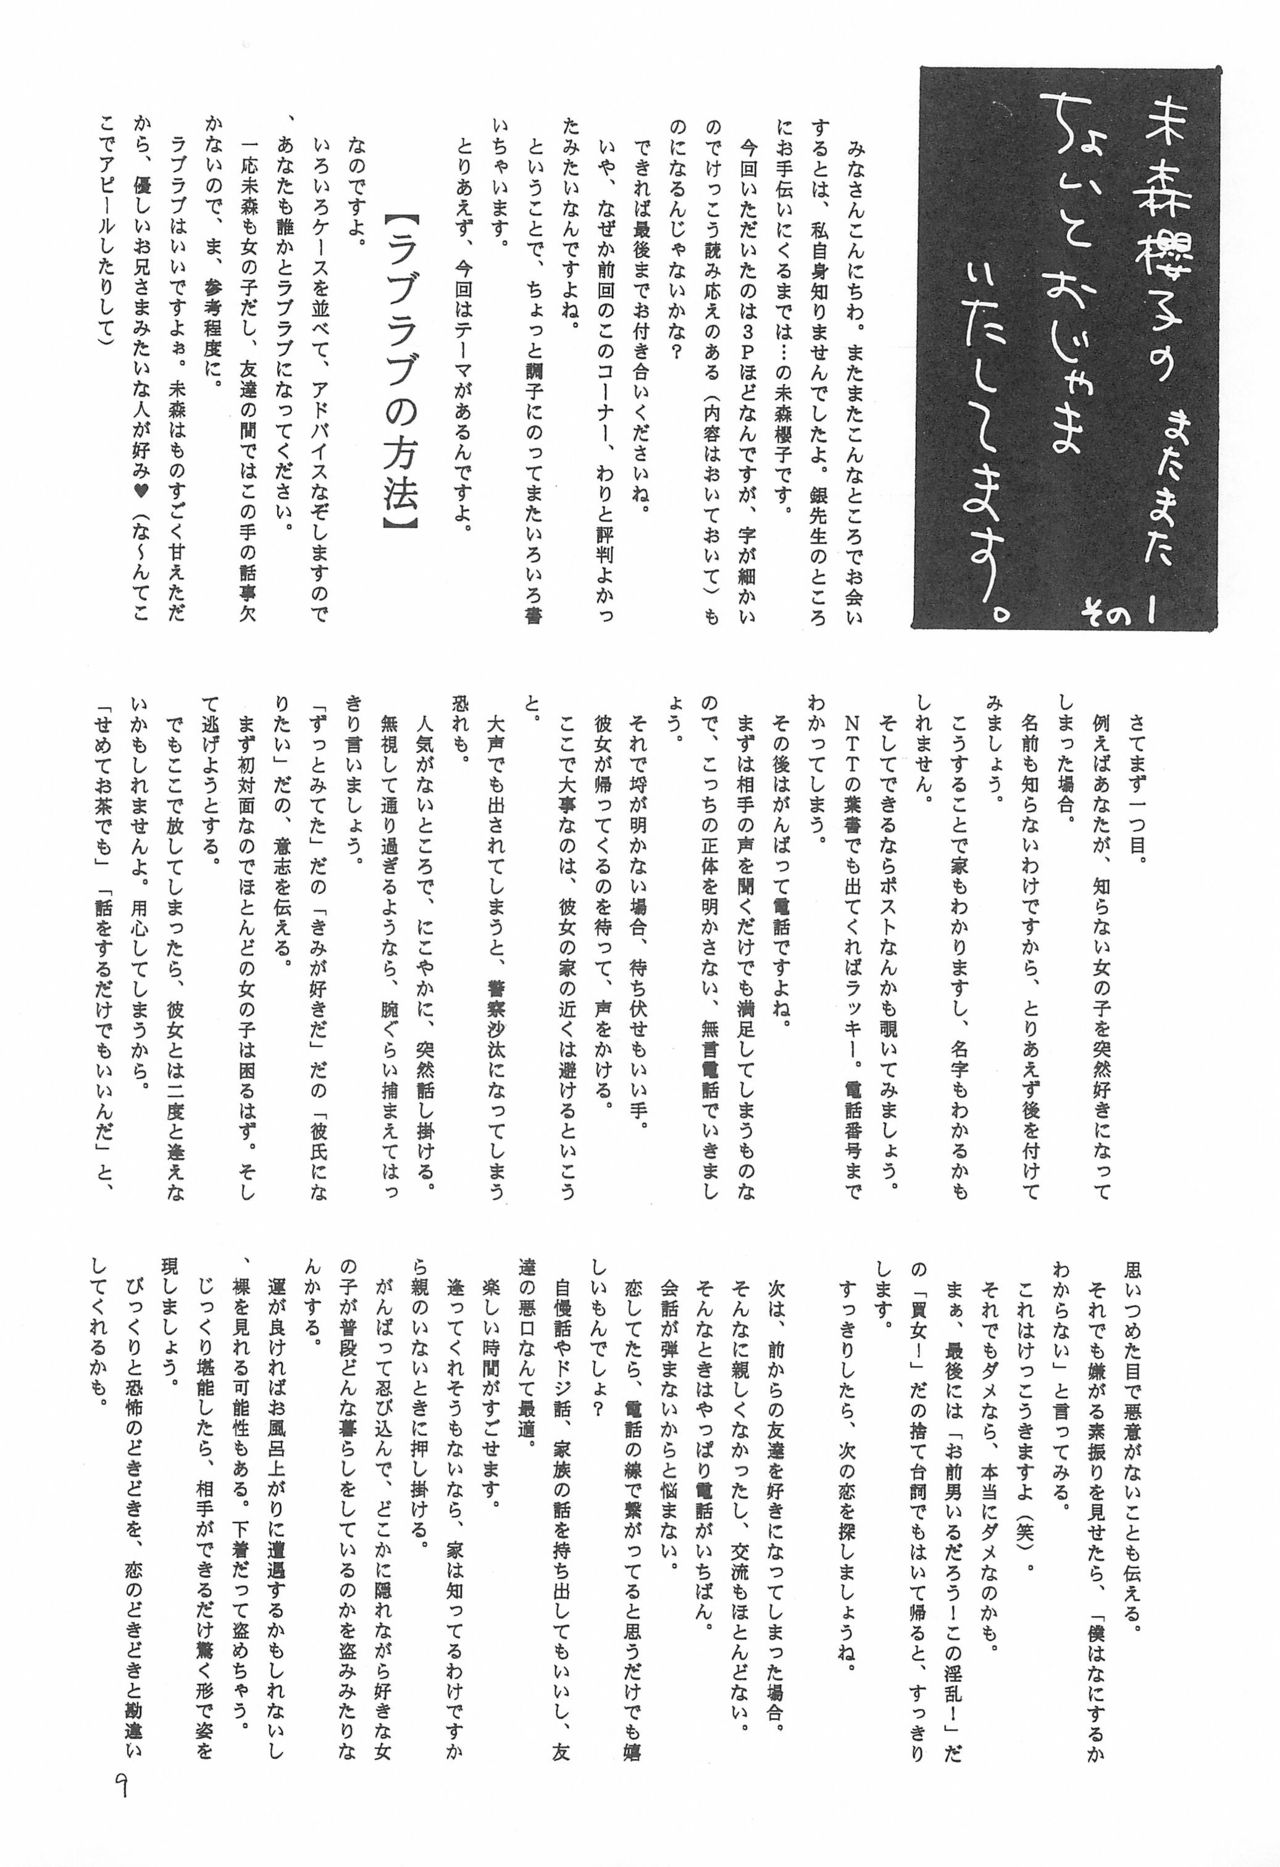 未森櫻子の またまた
ちょいとおじゃま
いたしてます。
その1
みなさんこんにちわ。またまたこんなところでお会い
するとは、私自身知りませんでしたよ。銀先生のところ
にお手伝いにくるまでは…の未森櫻子です。
今回いただいたのは3Pほどなんですが、字が細かい
のでけっこう読み応えのある（内容はおいておいて）も
のになるんじゃないかな？
できれば最後までお付き合いくださいね。
いや、なぜか前回のこのコーナー、わりと評判よかっ
たみたいなんですよね。
ということで、ちょっと調子にのってまたいろいろ書
いちゃいます。
とりあえず、今回はテーマがあるんですよ。
【ラブラブの方法】
なのですよ。
いろいろケースを並べて、アドバイスなぞしますので
、あなたも誰かとラブラブになってください。
一応未森も女の子だし、友達の間ではこの手の話事欠
かないので、ま、参考程度に。
ラブラブはいいですよぉ。未森はものすごく甘えただ
から、優しいお兄さまみたいな人が好み♥（な～んてこ
こでアピールしたりして）
さてまず一つ目。
例えばあなたが、知らない女の子を突然好きになって
しまった場合。
名前も知らないわけですから、とりあえず後を付けて
みましょう。
こうすることで家もわかりますし、名字もわかるかも
しれません。
そしてできるならポストなんかも覗いてみましょう。
NTTの葉書でも出てくればラッキー。電話番号まで
わかってしまう。
その後はがんばって電話ですよね。
まずは相手の声を聞くだけでも満足してしまうものな
ので、こっちの正体を明かさない、無言電話でいきまし
ょう。
それで埒が明かない場合、待ち伏せもいい手。
彼女が帰ってくるのを待って、声をかける。
ここで大事なのは、彼女の家の近くは避けるというこう
と。
大声でも出されてしまうと、警察沙汰になってしまう
恐れも。
人気がないところで、にこやかに、突然話し掛ける。
無視して通り過ぎるようなら、腕ぐらい捕まえてはっ
きり言いましょう。
「ずっとみてた」だの「きみが好きだ」だの「彼氏にな
りたい」だの、意志を伝える。
まず初対面なのでほとんどの女の子は困るはず。そし
て逃げようとする。
でもここで放してしまったら、彼女とは二度と逢えな
いかもしれませんよ。用心してしまうから。
「せめてお茶でも」「話をするだけでもいいんだ」と、
思いつめた目で悪意がないことも伝える。
それでも嫌がる素振りを見せたら、「僕はなにするか
わからない」と言ってみる。
これはけっこうきますよ（笑）。
それでもダメなら、本当にダメなのかも。
まぁ、最後には「お前男いるだろう！この淫乱！」だ
の「買女！」だの捨て台詞でもはいて帰ると、すっきり
します。
すっきりしたら、次の恋を探しましょうね。
次は、前からの友達を好きになってしまった場合。
そんなに親しくなかったし、交流もほとんどない。
そんなときはやっぱり電話がいちばん。
会話が弾まないからと悩まない。
恋してたら、電話の線で繋がってると思うだけでも嬉
しいもんでしょ？
自慢話やドジ話、家族の話を持ち出してもいいし、友
達の悪口なんて最適。
楽しい時間がすごせます。
逢ってくれそうもないなら、家は知ってるわけですか
ら親のいないときに押し掛ける。
がんばって忍び込んで、どこかに隠れながら好きな女
の子が普段どんな暮らしをしているのかを盗みみたりな
んかする。
運が良ければお風呂上がりに遭遇するかもしれないし
、裸を見れる可能性もある。下着だって盗めちゃう。
じっくり堪能したら、相手ができるだけ驚く形で姿を
現しましょう。
びっくりと恐怖のどきどきを、恋のどきどきと勘違い
してくれるかも。
9